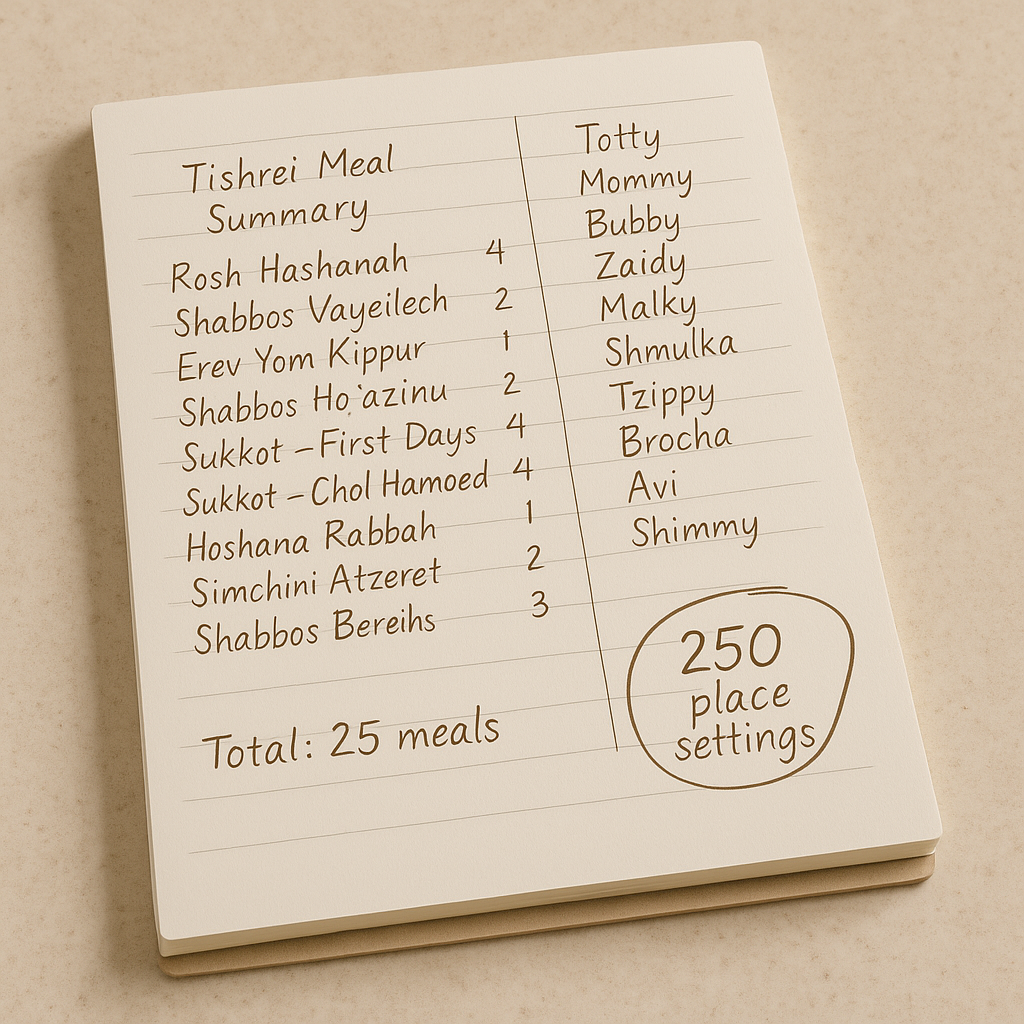 Tishrei Meal
Summary
Rosh Hashanah 4
Shabbos Vayeilech 2
Erev Yom Kippur 1
Shabbos Ho'azinu 2
Sukkot – First Days 4
Sukkot – Chol Hamoed 4
Hoshana Rabbah 1
Simchini Atzeret 2
Shabbos Bereihs 3
Total: 25 meals
Totty
Mommy
Bubby
Zaidy
Malky
Shmulka
Tzippy
Brocha
Avi
Shimmy
250
place
settings